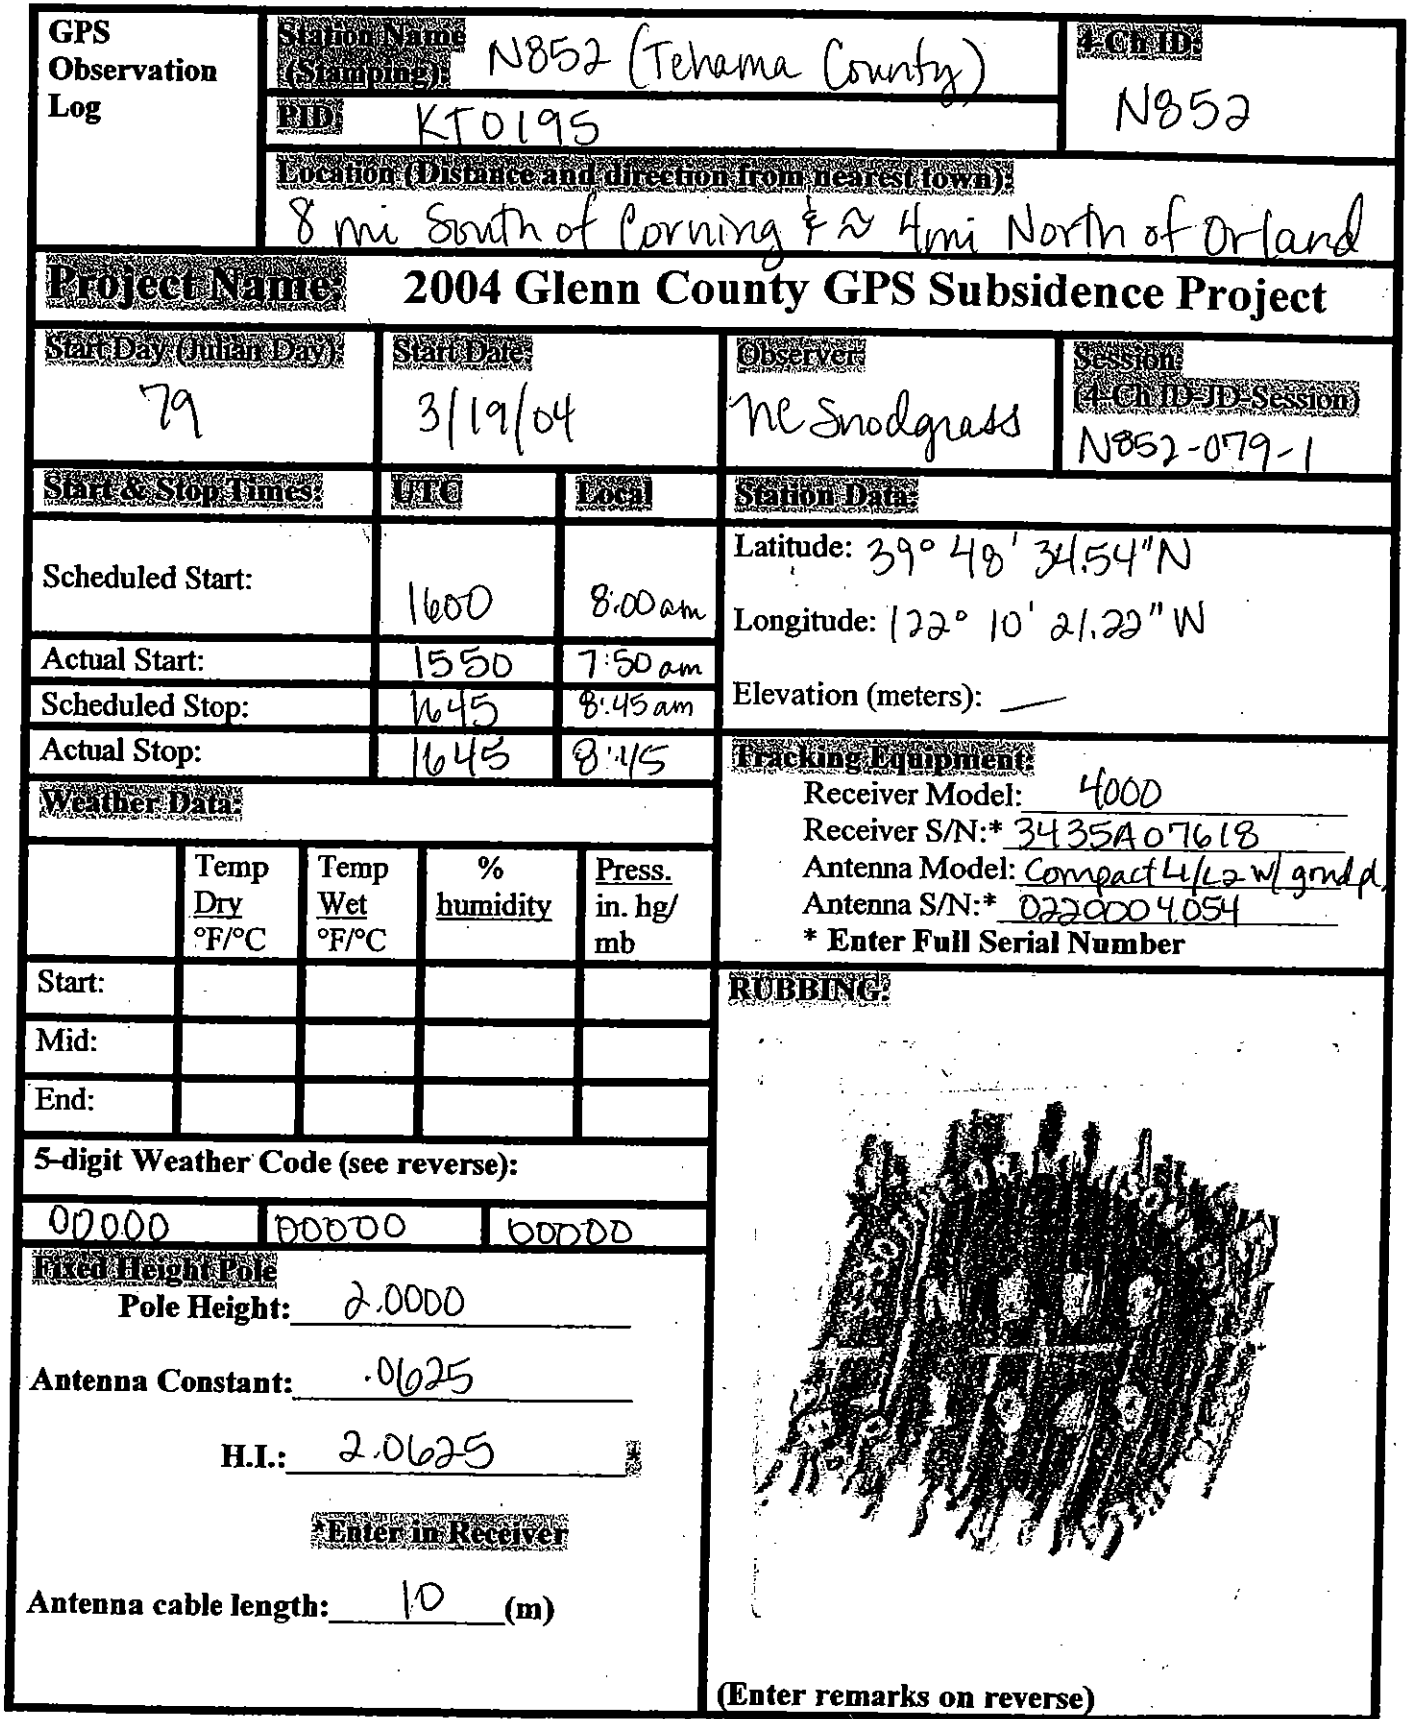 GPS
Observation
Log
Station Name
(Stamping): N852 (Tehama County)
4-Ch ID:
N852
PID: KT0195
Location (Distance and direction from nearest town):
8 mi South of Corning & ≈ 4mi North of Orland
Project Name: 2004 Glenn County GPS Subsidence Project
Start Day (Julian Day):
79
Start Date:
3/19/04
Observer:
MC Snodgrass
Session:
(4-Ch ID-JD-Session)
N852-079-1
Start & Stop Times: UTC Local
Scheduled Start: 1600 8:00am
Actual Start: 1550 7:50 am
Scheduled Stop: 1645 8:45 am
Actual Stop: 1645 8:45
Station Data:
Latitude: 39° 48' 34.54" N
Longitude: 122° 10' 21.22" W
Elevation (meters): —
Tracking Equipment:
Receiver Model: 4000
Receiver S/N:* 3435A07618
Antenna Model: Compact L1/L2 w/ grnd pl.
Antenna S/N:* 0220004054
* Enter Full Serial Number
Weather Data:
Temp
Dry
°F/°C
Temp
Wet
°F/°C
%
humidity
Press.
in. hg/
mb
Start:
Mid:
End:
5-digit Weather Code (see reverse):
00000 00000 00000
Fixed Height Pole
Pole Height: 2.0000
Antenna Constant: .0625
H.I.: 2.0625 *
*Enter in Receiver
Antenna cable length: 10 (m)
RUBBING:
(Enter remarks on reverse)